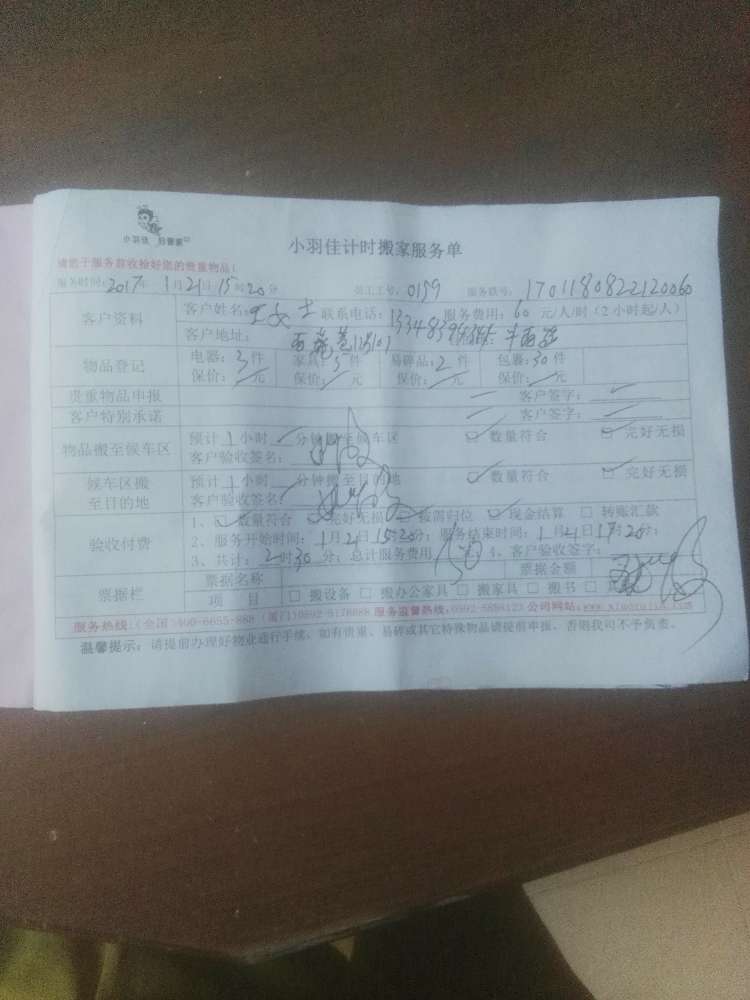 小羽佳 好管家
小羽佳计时搬家服务单
请您于服务前收捡好您的贵重物品!
服务时间:2017年 1月21日15时20分 员工工号:0159 服务账号:1701180822120060
客户资料 客户姓名:王女士 联系电话: 服务费用:60元/人/时(2小时起/人)
客户地址:
物品登记 电器:3件 家具:5件 易碎品:2件 包裹:30件
保价: 元 保价: 元 保价: 元 保价: 元
贵重物品申报 客户签字:
客户特别承诺 客户签字:
物品搬至候车区 预计1小时 分钟搬至候车区 数量符合 完好无损
客户验收签名:
候车区搬至目的地 预计1小时 分钟搬至目的地 数量符合 完好无损
客户验收签名:
验收付费 1、数量符合 完好无损 按需归位 现金结算 转账汇款
2、服务开始时间:1月21日15时20分;服务结束时间:1月21日17时20分;
3、共计:2时30分;总计服务费用 4、客户验收签字:
票据栏 票据名称 票据金额
项目 搬设备 搬办公家具 搬家具 搬书
服务热线:(全国)400-6655-888 (厦门)0592- 服务监督热线:0592-5898123 公司网站:
温馨提示:请提前办理好物业进行手续,如有贵重、易碎或其它特殊物品请提前申报,否则我司不予负责。